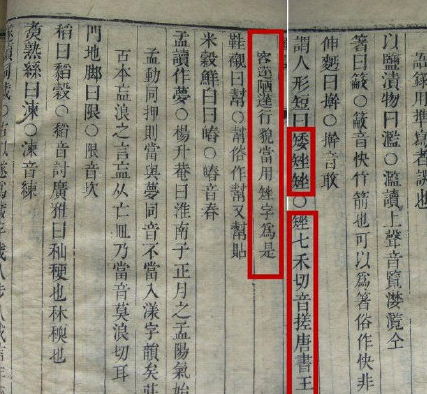 以鹽漬物曰濫○濫讀上聲音覽灠灠仝
箸曰筯○筯音快竹箭也可以爲箸俗作快非
伸麪曰擀○擀音敢
謂人形短曰矮矬矬○矬七禾切音搓唐書王
容逕陋達行貌當用矬字爲是
鞋覯曰幫○幫俗作幇又幫貼
米穀鮮白曰㫪○㫪音舂
孟讀作夢○楊升菴曰淮南子正月之孟陽氣始
孟動同押則當與夢同音不當入漾字韻矣莊
古本孟浪之言孟从亡皿乃當音莫浪切耳
門地脚曰限○限音坎
稻曰稻穀○稻音討廣雅曰秈稉也秫稬也
煑熟絲曰湅○湅音練